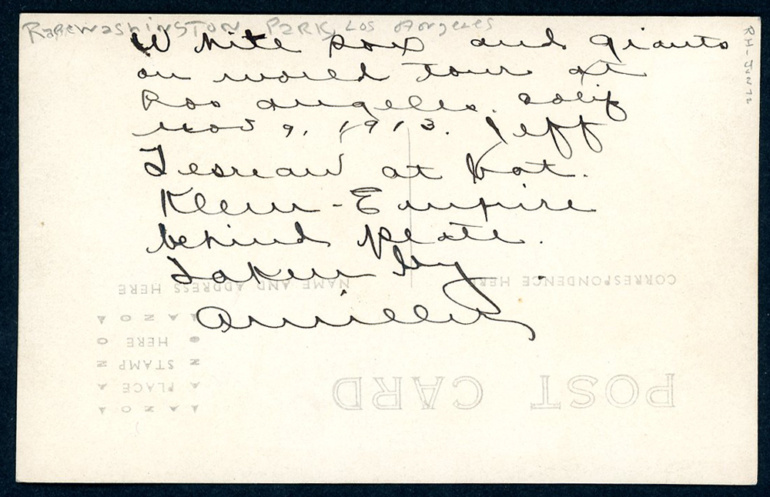 Rare Washington Park, Los Angeles
White Sox and Giants
on world tour at
Los Angeles. Calif
Nov 9, 1913. Jeff
Tesreau at bat.
Klem - Empire
behind plate.
Taken by
CORRESPONDENCE HERE
NAME AND ADDRESS HERE
POST CARD
AZOA
PLACE
STAMP
HERE
AZOA